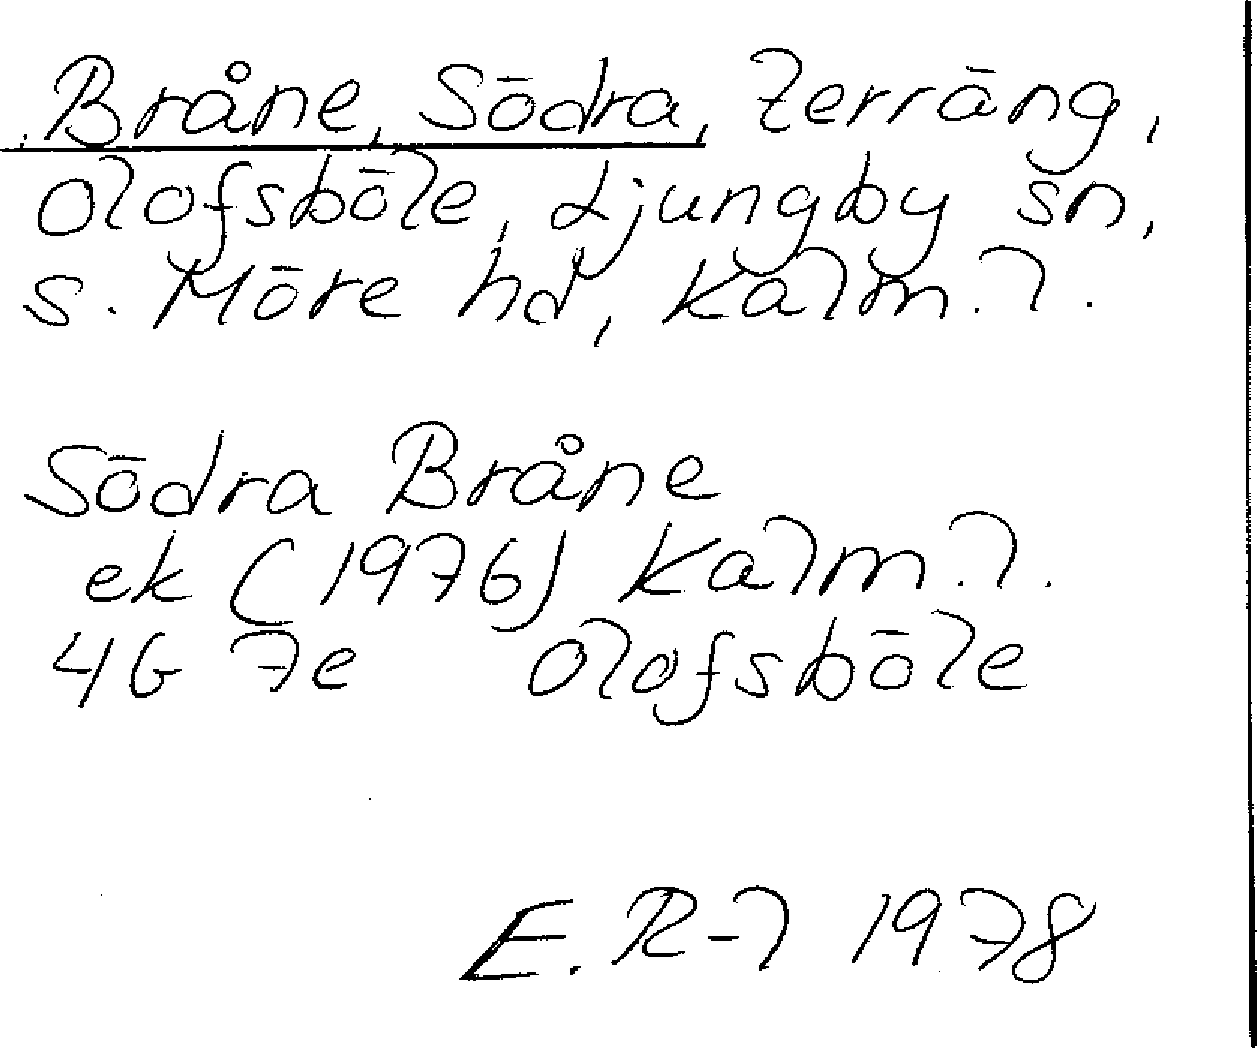 Bråne, Södra, terräng,
Olofsböle, Ljungby sn,
S. Möre hd, Kalm. l.
Södra Bråne
ek (1976) Kalm. l.
4G 7e Olofsböle
E. R-l 1978